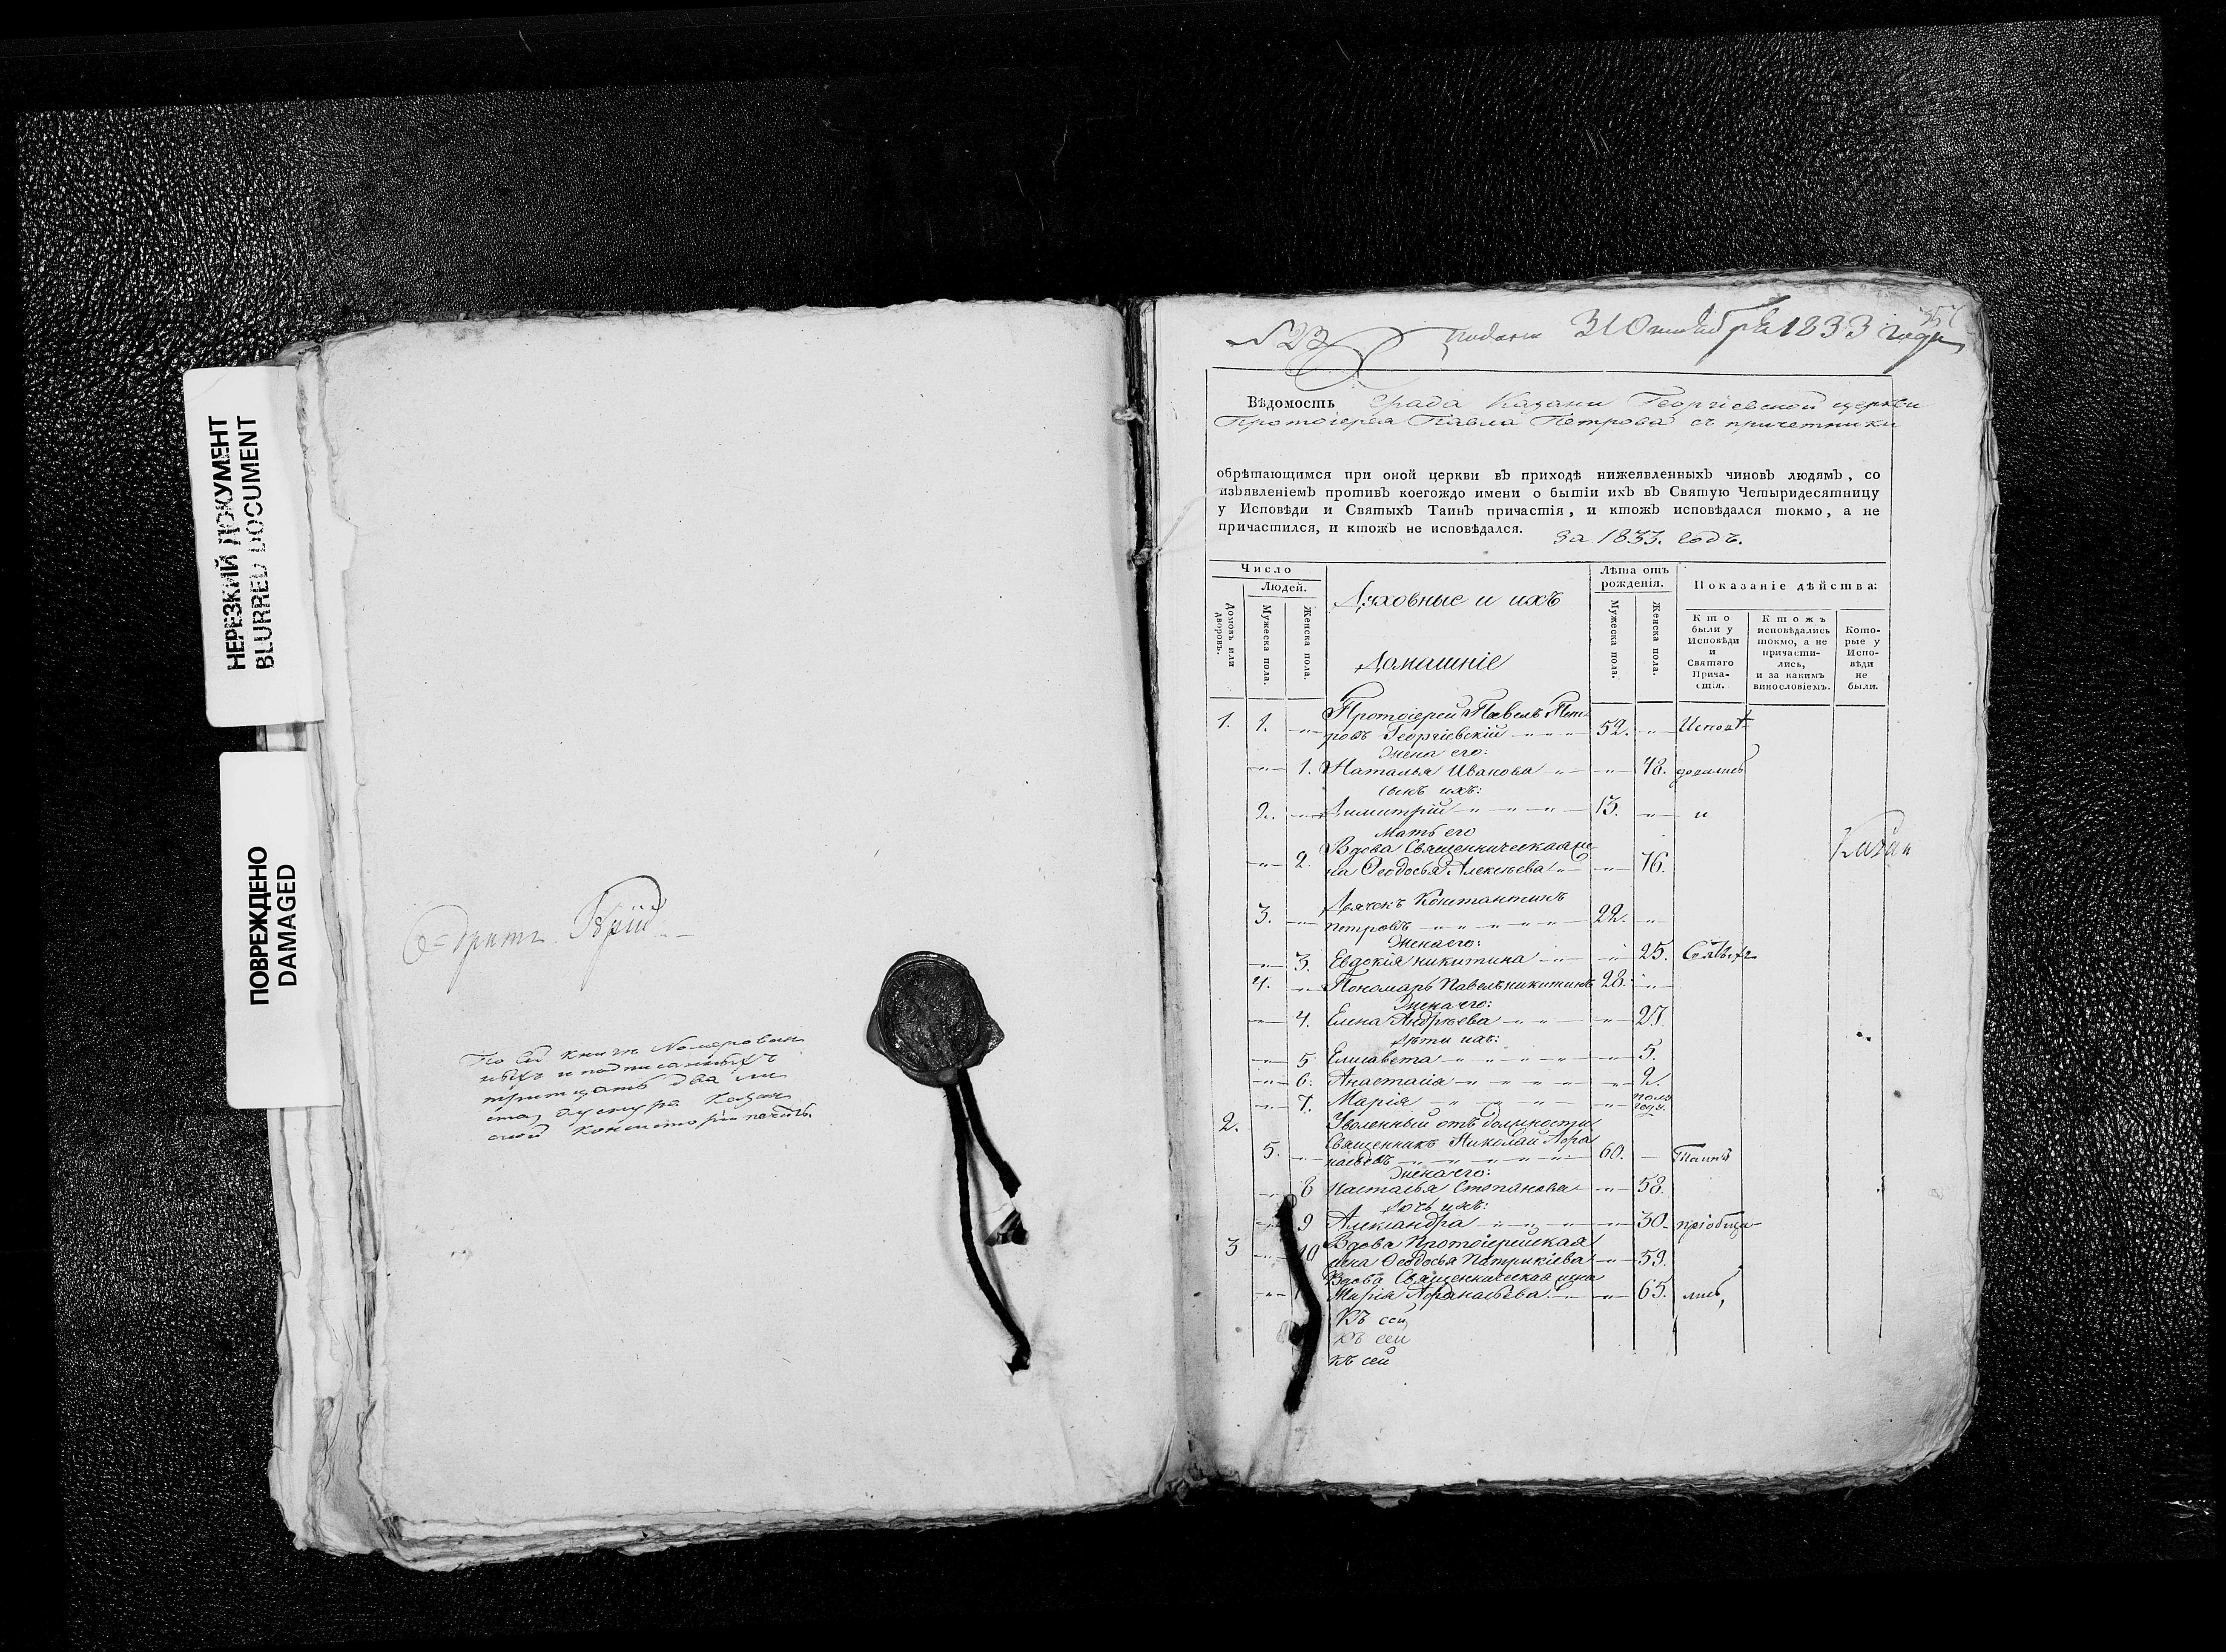 НЕРЕЗКИЙ ДОКУМЕНТ
BLURRED DOCUMENT
ПОВРЕЖДЕНО
DAMAGED
По сей книгѣ Номерован
ныхъ и подписанныхъ
тритцать два ли
ста,
печать
№ 23
Подана 31 Октября 1833 года
Вѣдомость Града Казани Георгіевской церкви
Протоіерея Павла Петрова съ причетники
обрѣтающимся при оной церкви въ приходѣ нижеявленныхъ чиновъ людямъ, со
изъявленіемъ противъ коегождо имени о бытіи ихъ въ Святую Четыридесятницу
у Исповѣди и Святыхъ Таинъ причастія, и ктожъ исповѣдался токмо, а не
причастился, и ктожъ не исповѣдался.
за 1833. годъ.
Число
Людей.
Домовъ или дворовъ.
Мужеска пола.
Женска пола.
Духовные и ихъ
Домашніе
Лѣта отъ рожденія.
Мужеска пола.
Женска пола.
Показаніе дѣйства:
Кто были у Исповѣди и Святаго Прича-стія.
Ктожъ исповѣдались токмо, а не причасти-лись, и за какимъ винословіемъ.
Кото-рые у Испо-вѣди не были.
1. 1. Протоіерей Павелъ Пет-
ровъ Георгіевскій 52. Исповѣ-
Жена его:
1. Наталья Иванова 48. дались
сынъ ихъ:
2. Димитрій 13. и
Мать его
Вдова Священническая же-
2. на Ѳеодосья Алексѣева 76.
Казан
3. Дьячекъ Константинъ
Петровъ 22.
Жена его:
3. Евдокія Никитина 25. Святыхъ
4. Пономарь Павелъ Никитинъ 28.
Жена его:
4. Елена Андреева 27.
дѣти ихъ:
5. Елисавета 5.
6. Анастасія 2.
7. Марія полъ
году.
2. Уволенный отъ должности
5. Священникъ Николай Афа
насьевъ 60. Таинъ
Жена его:
8 Настасья Степанова 58.
дочь ихъ:
9 Александра 30. пріобща-
3 10 Вдова Протоіерейская
жена Ѳеодосья Патрикіева 59.
Вдова Священническая жена
Марія Афанасьева 65. лись,
Къ сей
Къ сей
къ сей